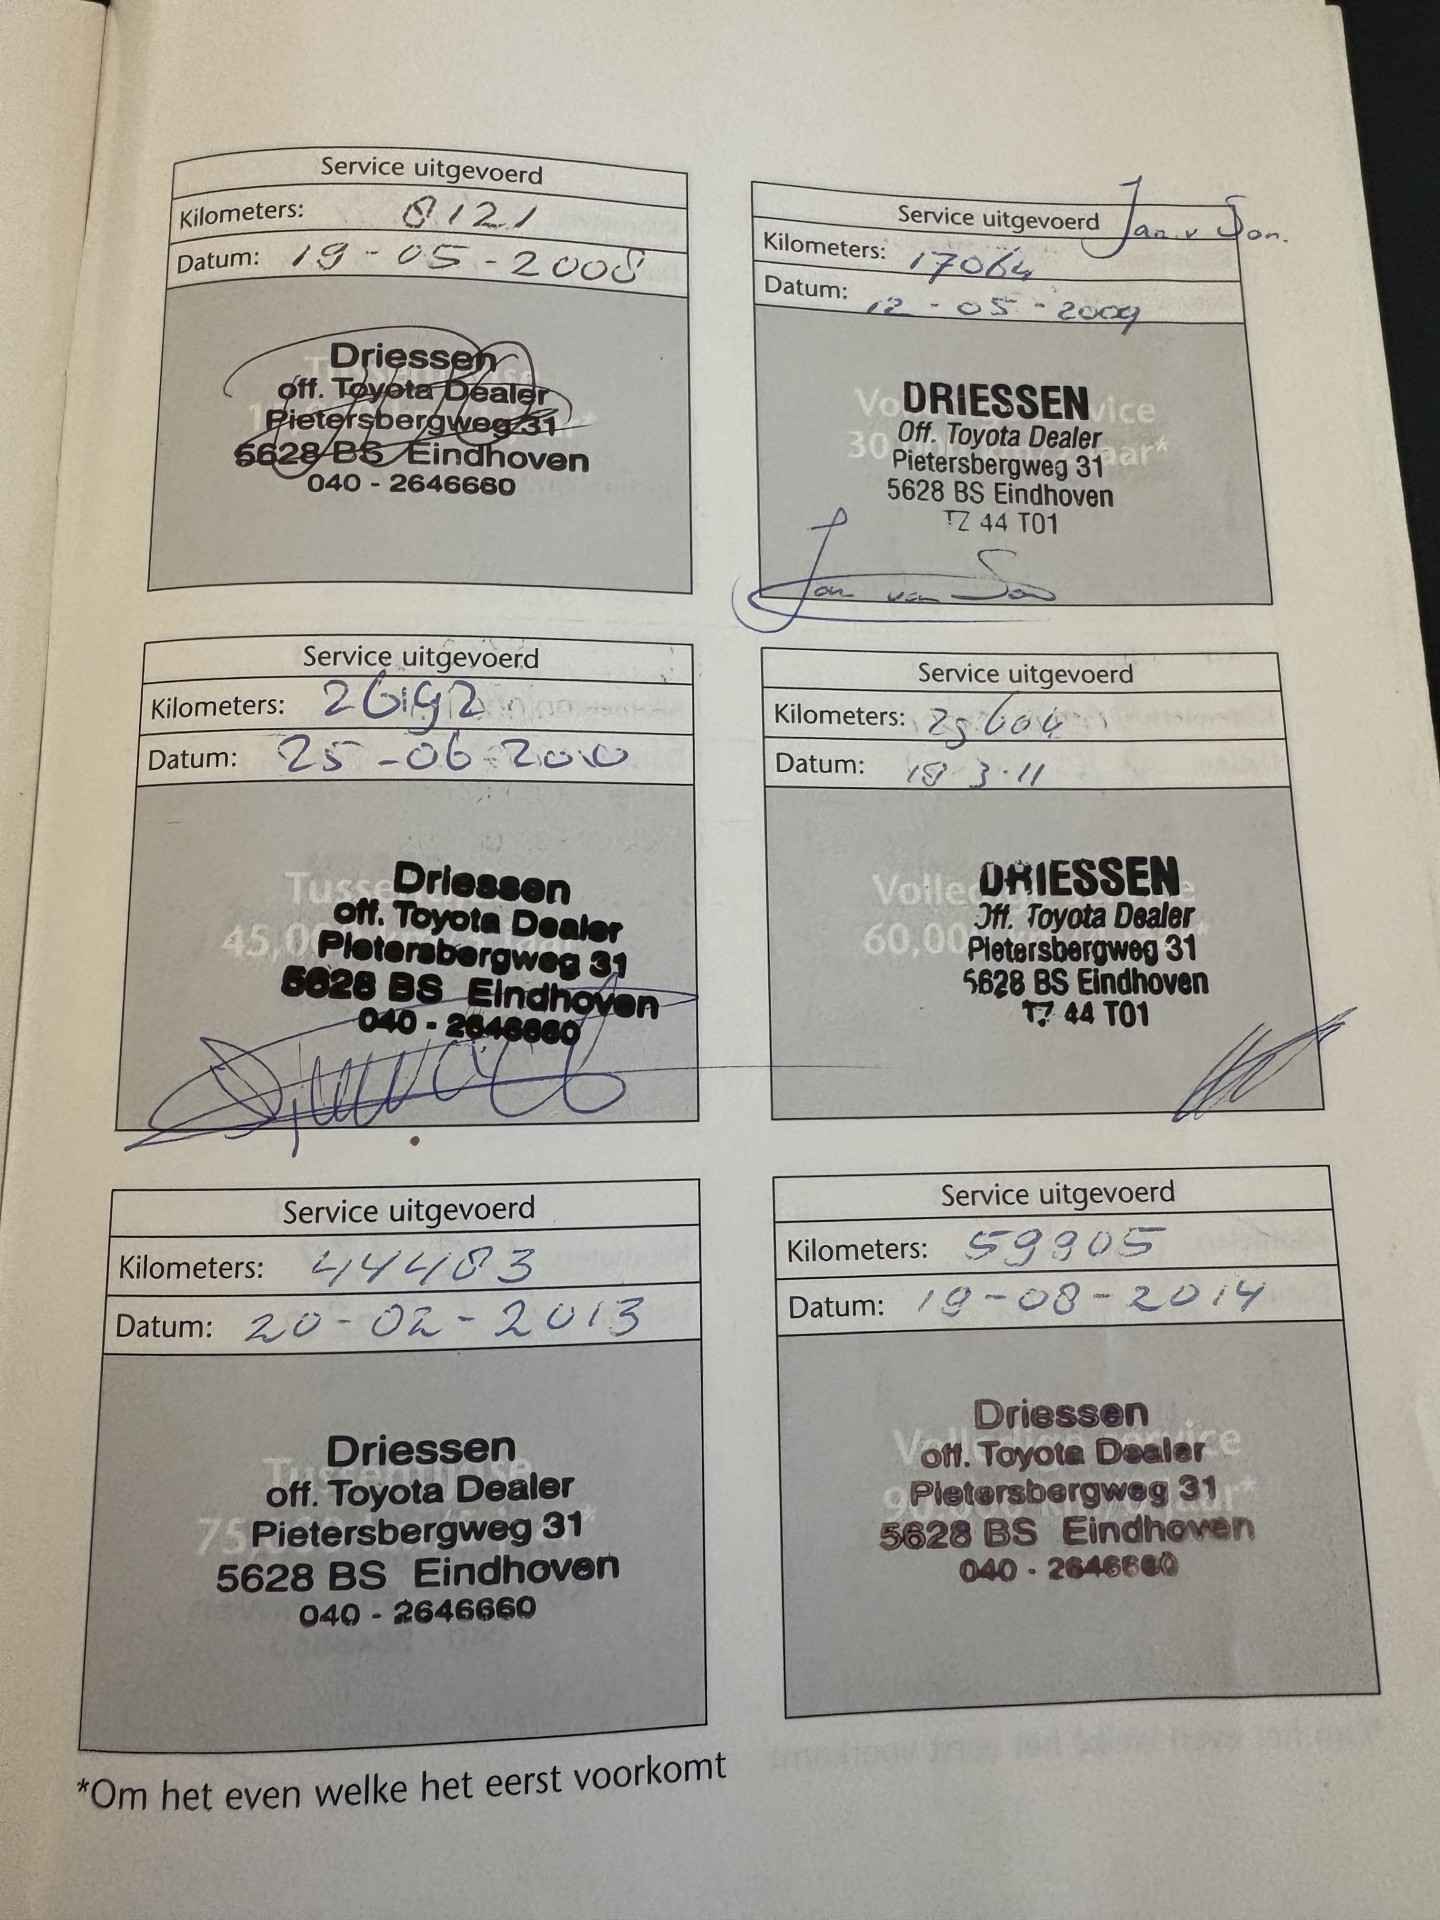 Service uitgevoerd
Kilometers: 8121
Datum: 19-05-2008
Driessen
off. Toyota Dealer
Pietersbergweg 31
5628 BS Eindhoven
040 - 2646660
Service uitgevoerd Jan v Son.
Kilometers: 17064
Datum: 12-05-2009
Volledige service
DRIESSEN
Off. Toyota Dealer
Pietersbergweg 31
5628 BS Eindhoven
TZ 44 T01
Jan van Son
Service uitgevoerd
Kilometers: 26192
Datum: 25-06-2010
Driessen
off. Toyota Dealer
Pietersbergweg 31
5628 BS Eindhoven
040 - 2646660
Service uitgevoerd
Kilometers:
Datum: 18-3-11
DRIESSEN
Off. Toyota Dealer
Pietersbergweg 31
5628 BS Eindhoven
TZ 44 T01
Service uitgevoerd
Kilometers: 44483
Datum: 20-02-2013
Driessen
off. Toyota Dealer
Pietersbergweg 31
5628 BS Eindhoven
040 - 2646660
Service uitgevoerd
Kilometers: 59905
Datum: 19-08-2014
Volledige service
Driessen
off. Toyota Dealer
Pietersbergweg 31
5628 BS Eindhoven
040 - 2646660
*Om het even welke het eerst voorkomt